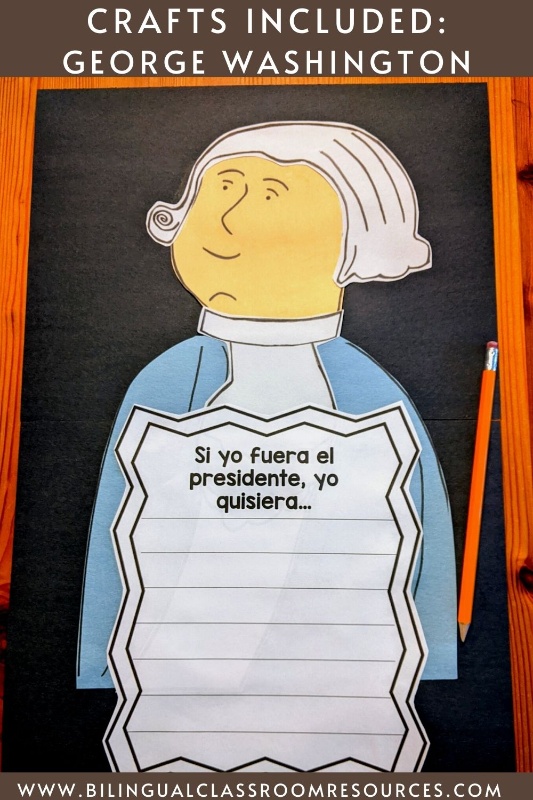 CRAFTS INCLUDED:
GEORGE WASHINGTON
Si yo fuera el
presidente, yo
quisiera...
WWW.BILINGUALCLASSROOMRESOURCES.COM